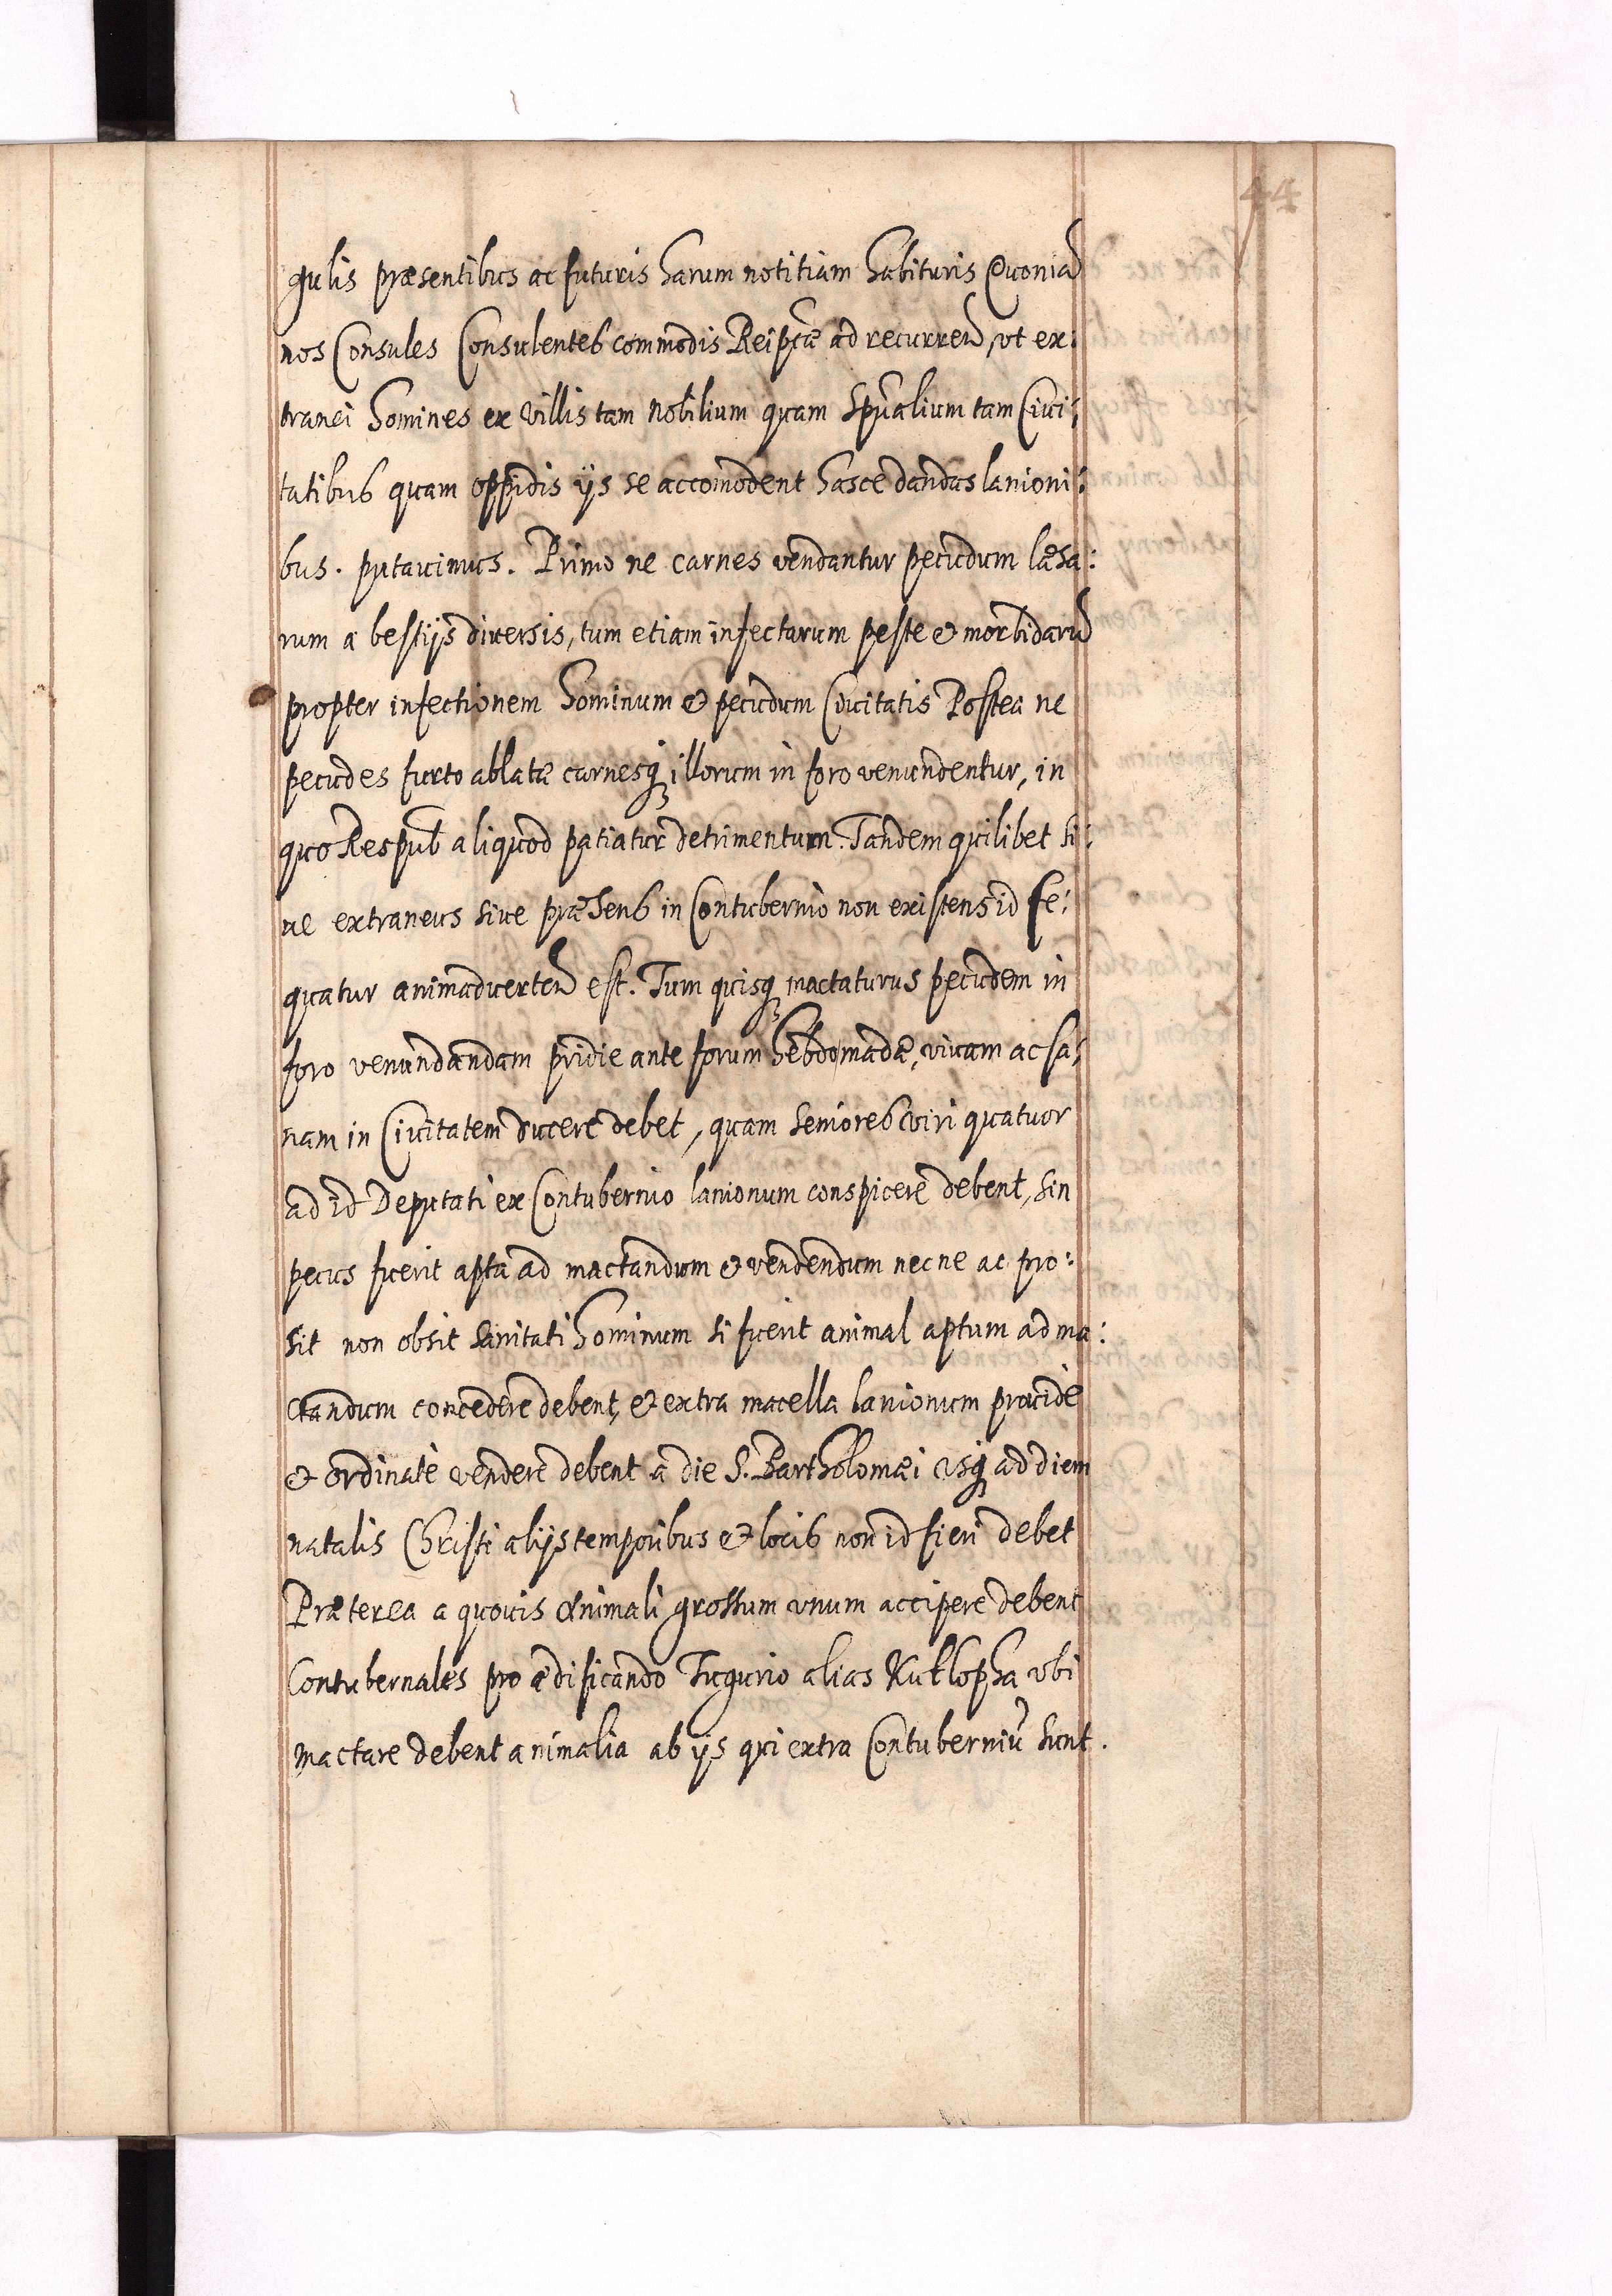 44
gulis præsentibus ac futuris harum notitiam habituris Quonia͂
nos Consules Consulentes commodis Reipcæ ad recurren͂, vt ex:
tranei homines ex villis tam nobilium quam Spũalium tam Civi:
tatibus quam oppidis ijs se accomodent hasce dandas lanioni:
bus. putauimus. Primo ne carnes vendantur pecudum læsa:
rum a bestijs diuersis, tum etiam infectarum peste & morbidaru͂
propter infectionem hominum & pecudum Ciuitatis Postea ne
pecudes furto ablatæ carnesq₃ illorum in foro venundentur, in
quo Respub aliquod patiatur detrimentum. Tandem quilibet si:
ue extraneus siue præsens in Contubernio non existens id se:
quatur animaduerten͂ est. Tum quisq₃ mactaturus pecudem in
foro venundandam pridie ante forum hebdomadæ, viuam ac sa:
nam in Ciuitatem ducere debet, quam seniores viri quatuor
ad id Deputati ex Contubernio lanionum conspicere debent, sin
pecus fuerit apta ad mactandum & vendendum necne ac pro:
sit non obsit sanitati hominum si fuerit animal aptum ad ma:
ctandum concedere debent, & extra macella lanionum prouidè
& ordinatè vendere debent a die S. Bartholomæi vsq₃ ad diem
natalis Christi alijs temporibus & locis non id fieri debet
Præterea a quouis animali grossum vnum accipere debent
Contubernales pro ædificando Tugurio alias Kutłopha vbi
mactare debent animalia ab ijs qui extra Contuberniu͂ sunt.